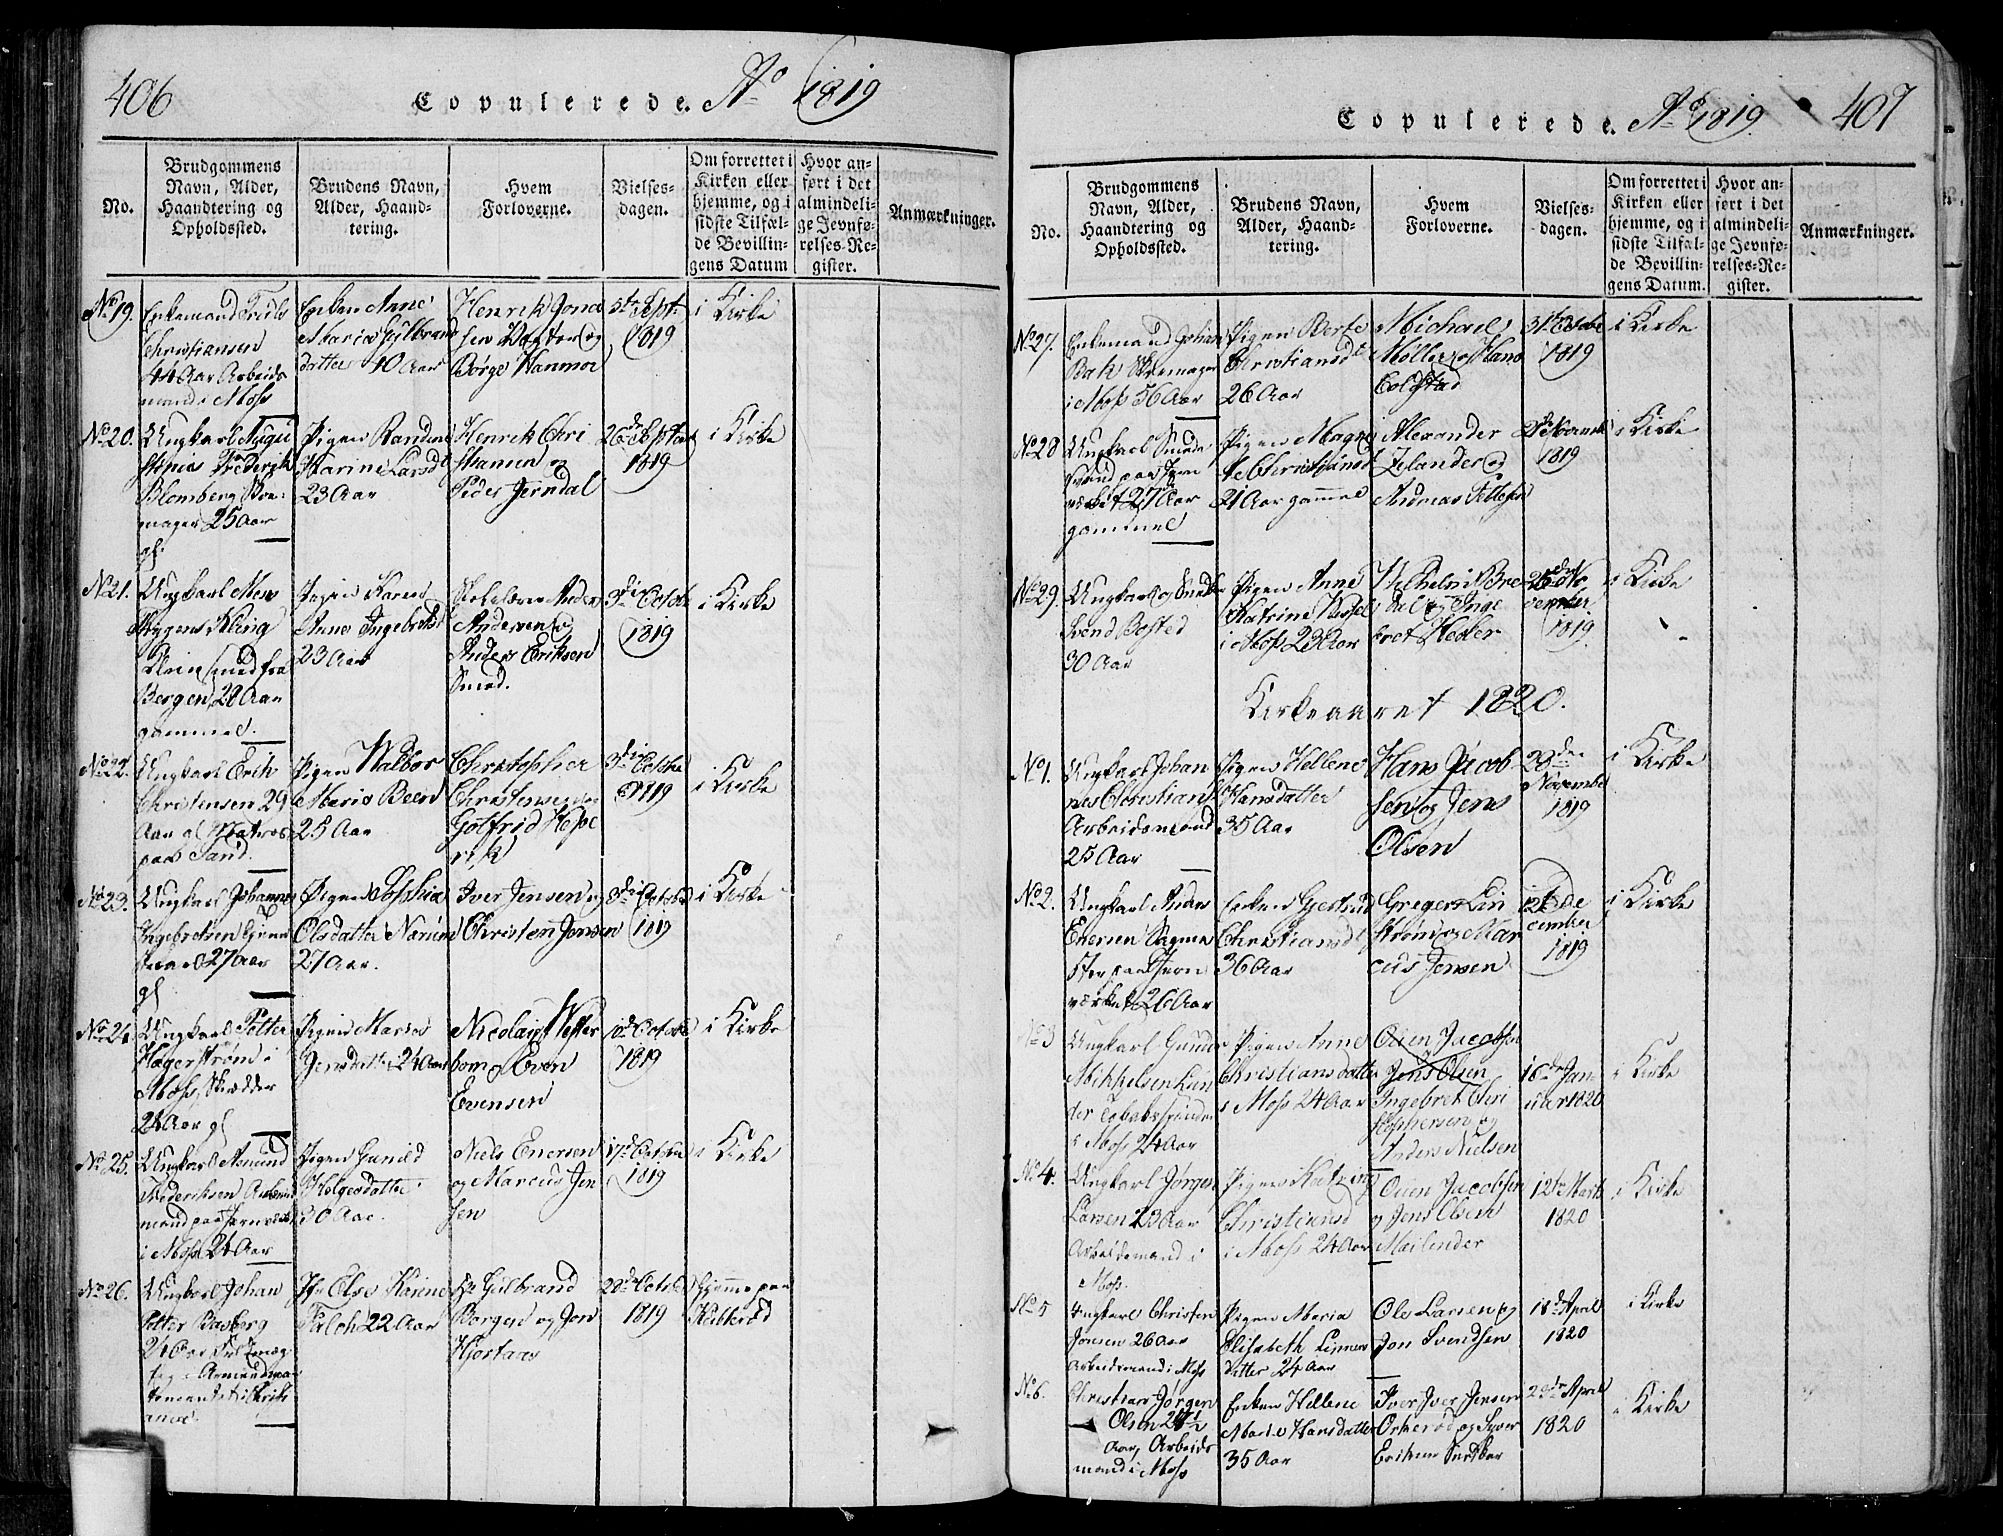 406
Copulerede. Aº 1819
No.
Brudgommens
Navn, Alder,
Haandtering og
Opholdssted.
Brudens Navn,
Alder, Haand-
tering.
Hvem
Forloverne.
Vielses-
dagen.
Om forrettet i
Kirken eller
hjemme, og i
sidste Tilfæl-
de Bevillin-
gens Datum
Hvor an-
ført i det
almindeli-
ge Jevnfø-
relses-Re-
gister.
Anmærkninger.
No 19.
Enkemand
Christiansen
44 Aar Arbeids
mand i Moss
Enken Anne
Maria Gulbrand
datter 40 Aar
Henrik Jona
sen og
Børge Hanmoe
5te Sept.
1819
i Kirke
No 20.
Ungkarl Augu
Frederich
Blomberg Skoe-
mager 25 Aar
gl.
Pigen Randine
Karine Larsd
23 Aar
Henrik Chri
stiansen og
Peder Jerndal
26de Septbr
1819
i Kirke
No 21.
Ungkarl
Kling
Klein smed fra
Bergen, 28 Aar
gammel.
Pigen Karen
Anne Ingebretsd
23 Aar
Anders
Andersen og
Anders Eriksen
Smed.
3die Octob
1819
i Kirke
No 22.
Ungkarl Erik
Christensen 29
Aar gl Matros
paa Sand.
Pigen Walbor
Maria Been
25 Aar
Christopher
Christensen og
Gotfrid Hesse
risk
3die Octbr
1819
i Kirke
No 23.
Ungkarl Johannes
Ingebretsen
27 Aar
gl
Pigen Sophia
Olsdatter Narum
27 Aar.
Iver Jensen og
Christen Jensen
3die Octob
1819
i Kirke
No 24.
Ungkarl Petter
Hagerstrøm i
Moss, Skrædder
24 Aar gl
Pigen Maren
Jensdatter 24 Aar
Nicolai Wester
bom og Even
Evensen
10de Octobr
1819
i Kirke
No 25.
Ungkarl Asmund
Frederiksen Arbeids
mand paa Jernverket
i Moss 24 Aar
Pigen Gunild
Helgesdatter
30 Aar.
Niels Enersen
og Marcus Jen
sen
17de Octobr
1819
i Kirke
No 26.
Ungkarl Johan
Petter Basberg
Jfr Else Karine
Falch 22 Aar
Hr Gulbrand
Borgen og Jon
Hjortaas
28de Octob
1819
hjemme paa
Kibberød
Copulerede. Aº 1819.
407
No.
Brudgommens
Navn, Alder,
Haandtering og
Opholdssted.
Brudens Navn,
Alder, Haand-
tering.
Hvem
Forloverne.
Vielses-
dagen.
Om forrettet i
Kirken eller
hjemme, og i
sidste Tilfæl-
de Bevillin-
gens Datum.
Hvor an-
ført i det
almindeli-
ge Jevnfø-
relses-Re-
gister.
Anmærkninger.
No 27.
Enkemand Johan
Bak Skoemager
i Moss 56 Aar
Pigen Berte
Christiansdt
26 Aar
Michael
Møller og Hans
Coldstad
31te Octobr
1819
i Kirke
No 28
Ungkarl
Svend paa Jern
værket 27 Aar
gammel
Pigen Magne
te Christiansd
21 Aar gammel
Alexander
Zelander og
Andreas
Novemb
1819
i Kirke
No 29.
Ungkarl og Snedker
Svend Bosted
30 Aar
Pigen Anne
Katrine
i Moss 23 Aar
Wilhelm Bre
dal og Inge
bret Heeler
25de No
vember
1819.
i Kirke
Kirkeaaret 1820.
No 1.
Ungkarl Johan
nes Christians
Arbeidsmand
25 Aar
Pigen Hellene
Hansdatter
35 Aar
Hans Jacob
sen og Jens
Olsen
28de
Novembr
1819
i Kirke
No 2.
Ungkarl Anders
Enersen Sagme
ster paa Jern
værket 26 Aar
Enken Gjertrud
Christiansdt
36 Aar
Greger Lin
strøm og Mar
cus Jensen
De
cember
1819
i Kirke
No 3
Ungkarl Gunder
Mikkelsen Lun
der Tobaksspinder
i Moss 24 Aar
Pigen Anne
Christiansdatter
i Moss 24 Aar
Ouen Jacobsen
Jens Olsen
Ingebret Chri
stophersen og
Anders Nielsen
16de Jan-
uar 1820
i Kirke
No 4.
Ungkarl Jørgen
Larsen 23 Aar
Arbeidsmand i
Moss.
Pigen Katrine
Christiansd
i Moss 24 Aar
Ouen Jacobsen
og Jens Olsen
Mailender
12te Marts
1820
i Kirke
No 5
Ungkarl Christen
Jonsen 26 Aar
Arbeidsmand i Moss
Pigen Maria
Elisabeth Linner
datter 24 Aar
Ole Larsen og
Jon Svendsen
18de April
1820
i Kirke
No 6.
Christian Jørgen
Olsen 24½
Aar, Arbeids
mand i Moss
Enken Hellene
Marie Hansdatter
35 Aar
Iver Iver Jensen
Orkerød og Syver
Eriksen
April
1820
i Kirke